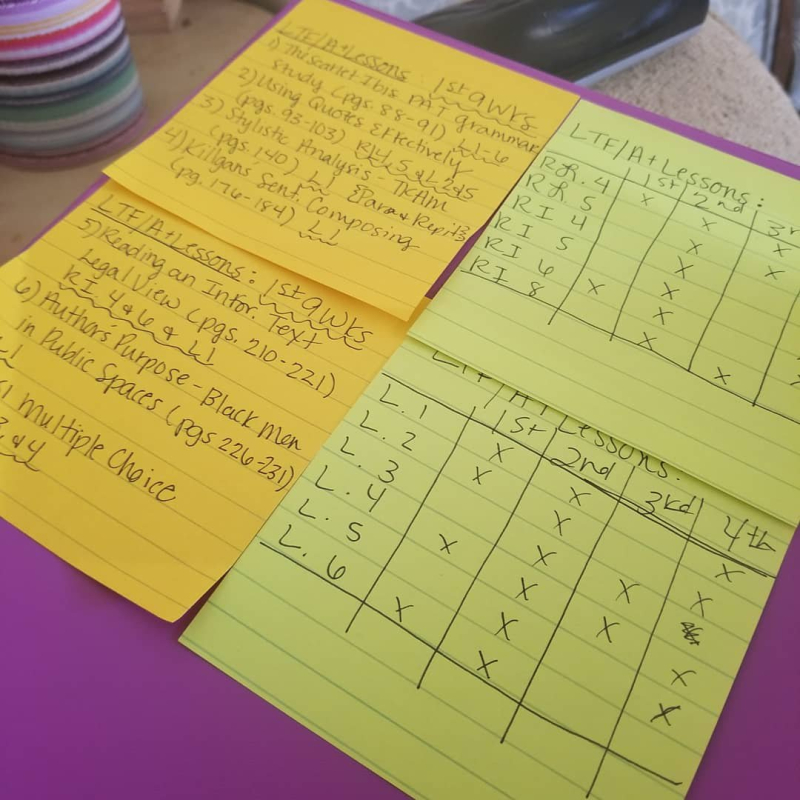 LTF/A+Lessons: 1st 9Wks
1) This Scarlet Ibis PAT grammar
study (pgs. 88-91) L1-6
2) Using Quotes Effectively
(pgs. 93-103) RL4, 5 & L2&5
3) Stylistic Analysis - TKAM
(pgs. 140) L1 &Para & Repit3
4) Killgans Sent. Composing
(pg. 176-184) L1
LTF/A+Lessons: 1st 9Wks
5) Reading an Infor. Text
Legal View (pgs. 210-221)
RI 4 & 6 & L1
6) Author's Purpose - Black Men
in Public Spaces (pgs 226-231)
L1
Multiple Choice
& 4
LTF/A+Lessons:
1st 2nd 3r
RL. 4 X X X
RL 5 X X
RI 4 X
RI 5 X X
RI 6 X
RI 8 X
LTF/A+Lessons:
1st 2nd 3rd 4th
L. 1 X X X
L. 2 X X X
L. 3 X X
L. 4 X X X X
L. 5 X X
L. 6 X X